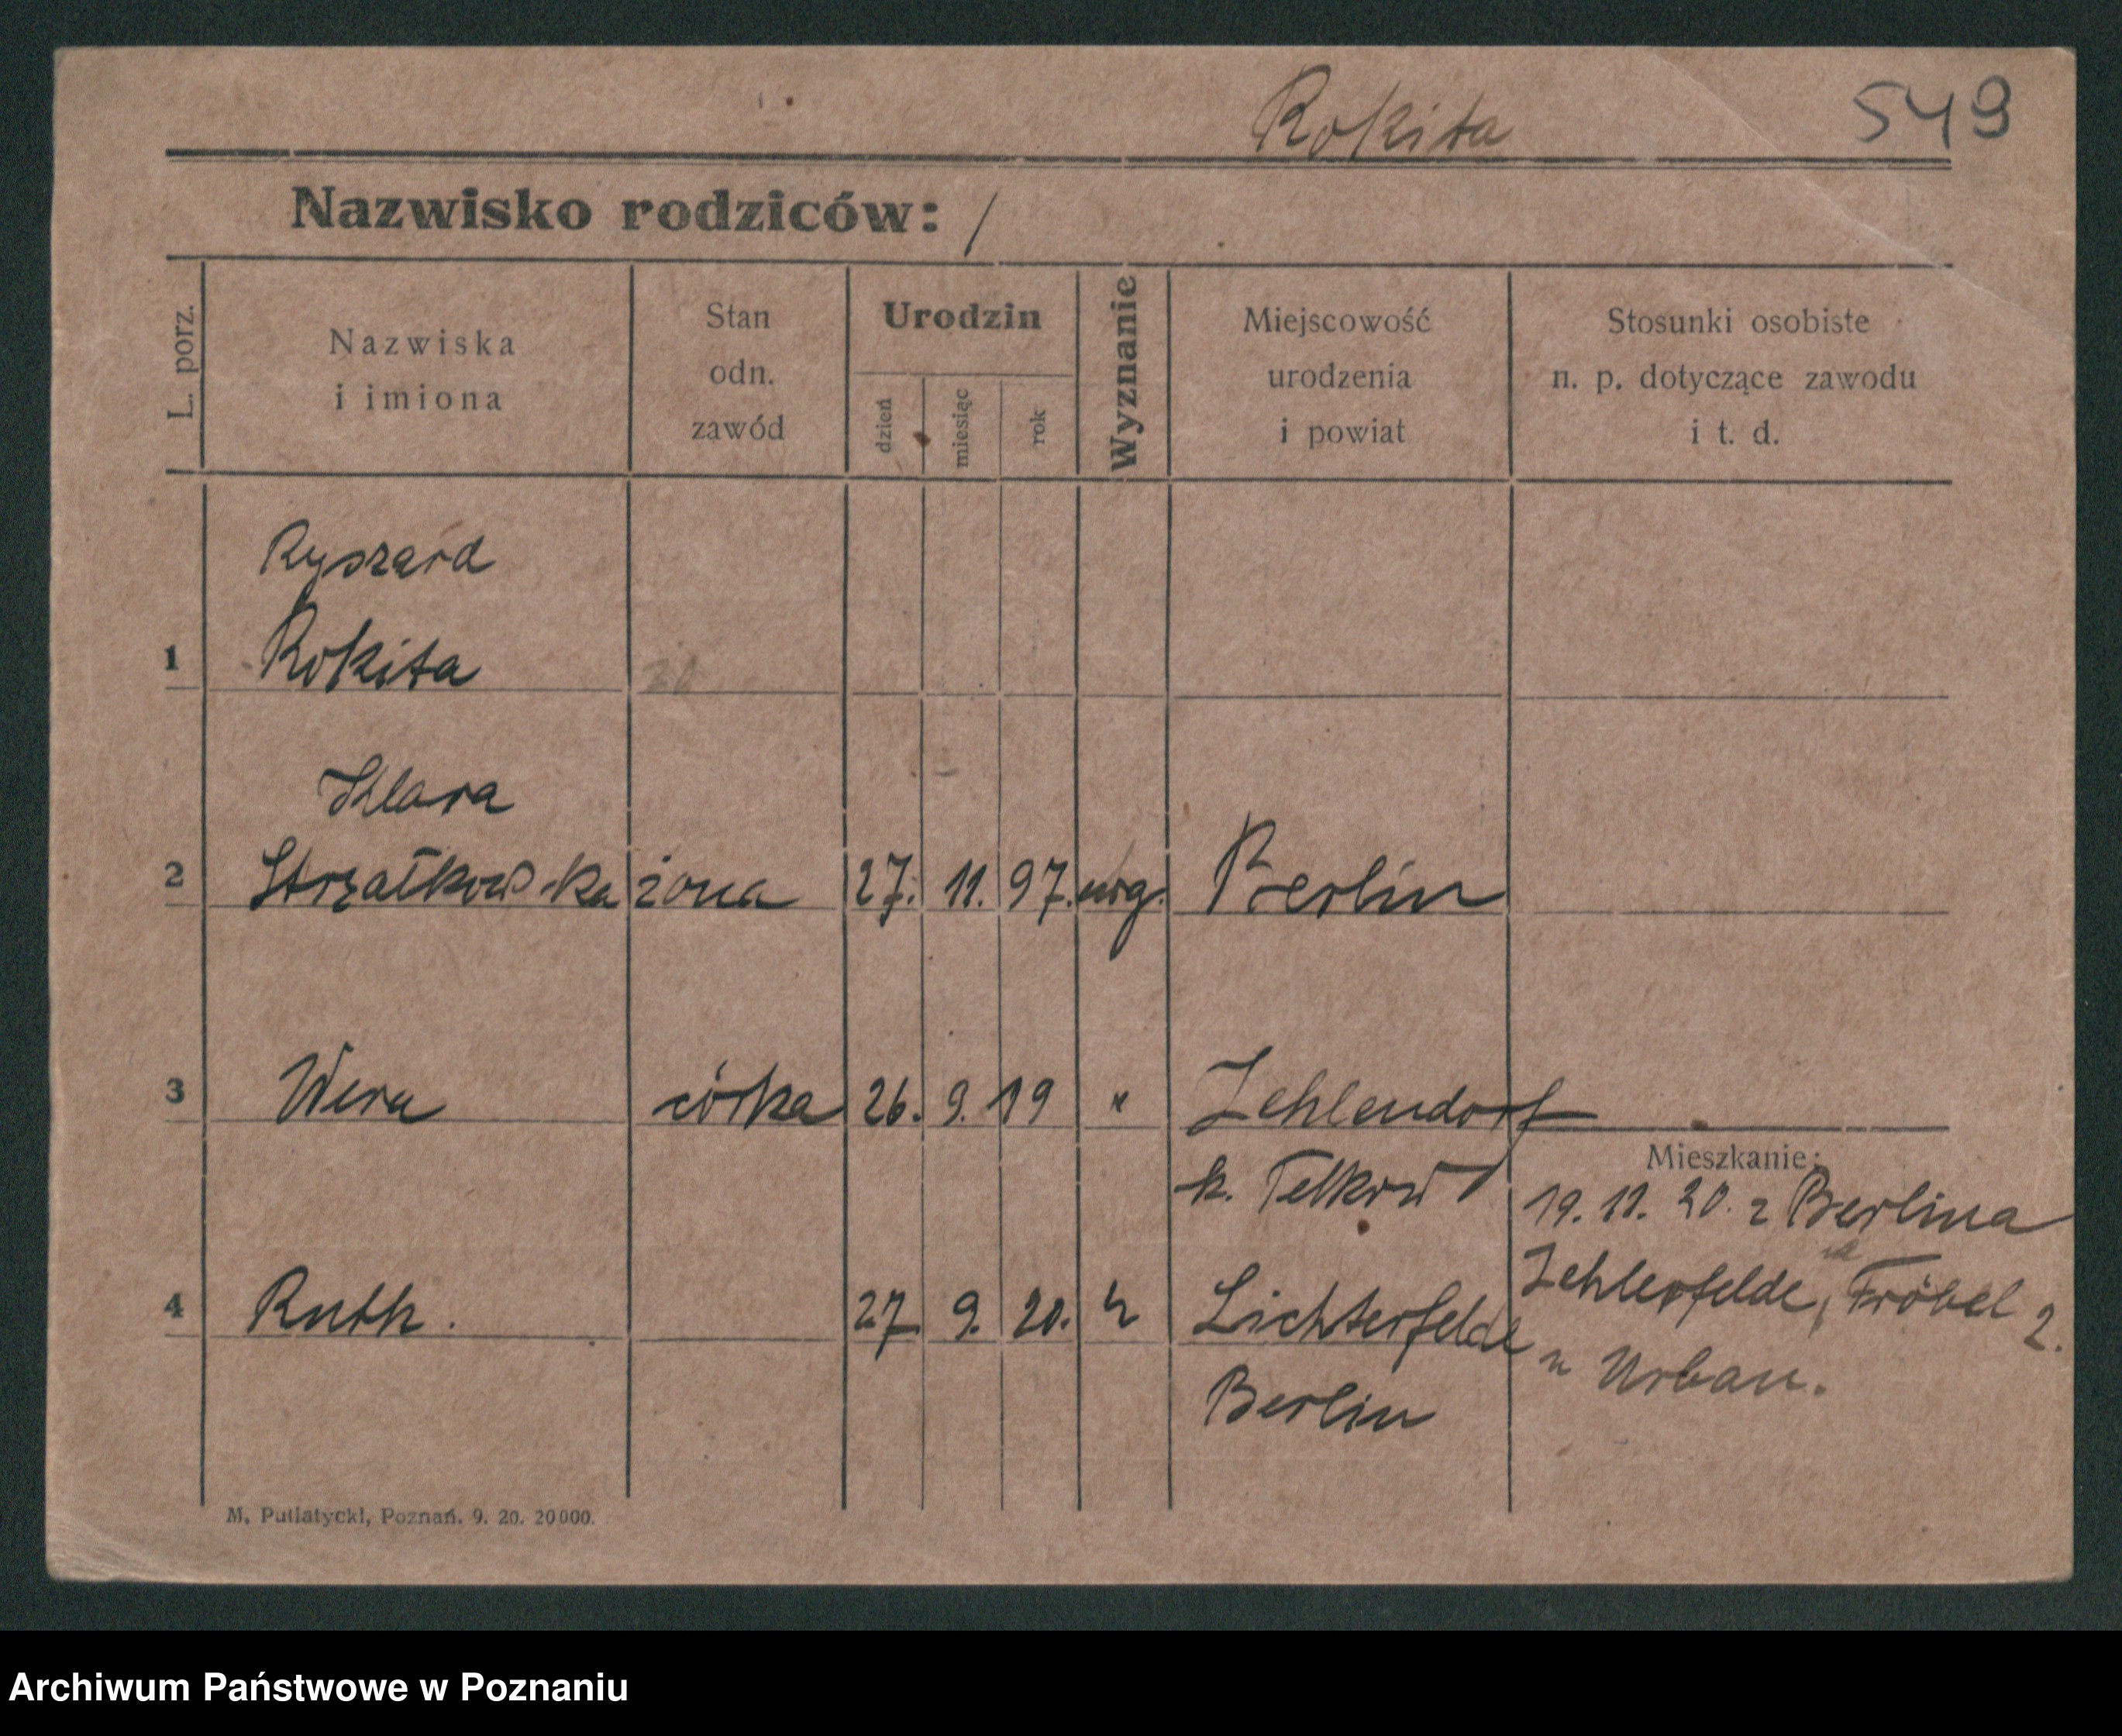 Rokita 549
Nazwisko rodziców: /
L. porz.
Nazwiska
i imiona
Stan
odn.
zawód
Urodzin
dzień
miesiąc
rok
Wyznanie
Miejscowość
urodzenia
i powiat
Stosunki osobiste
n. p. dotyczące zawodu
i t. d.
Ryszard
1 Rokita
Klara
2 Strzałkowska żona 27. 11. 97. Berlin
3 Wera córka 26. 9. 19 " Zehlendorf
k. Telkow
Mieszkanie:
19. 11. 20. z Berlina
4 Ruth. 27 9. 20. " Lichterfelde
Berlin
Zehlerfelde, Fröbel 2.
u Urban.
M. Putiatycki, Poznań. 9. 20. 20000.
Archiwum Państwowe w Poznaniu